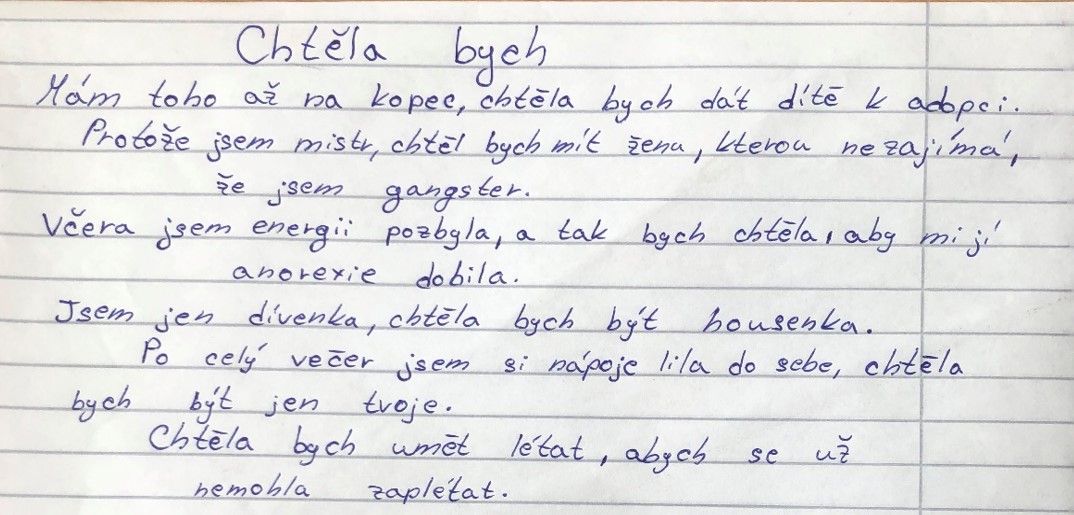 Chtěla bych
Mám toho až na kopec, chtěla bych dát dítě k adopci.
Protože jsem mistr, chtěl bych mít ženu, kterou nezajímá,
že jsem gangster.
Včera jsem energii pozbyla, a tak bych chtěla, aby mi jí
anorexie dobila.
Jsem jen dívenka, chtěla bych být housenka.
Po celý večer jsem si nápoje lila do sebe, chtěla
bych být jen tvoje.
Chtěla bych umět létat, abych se už
nemohla zaplétat.